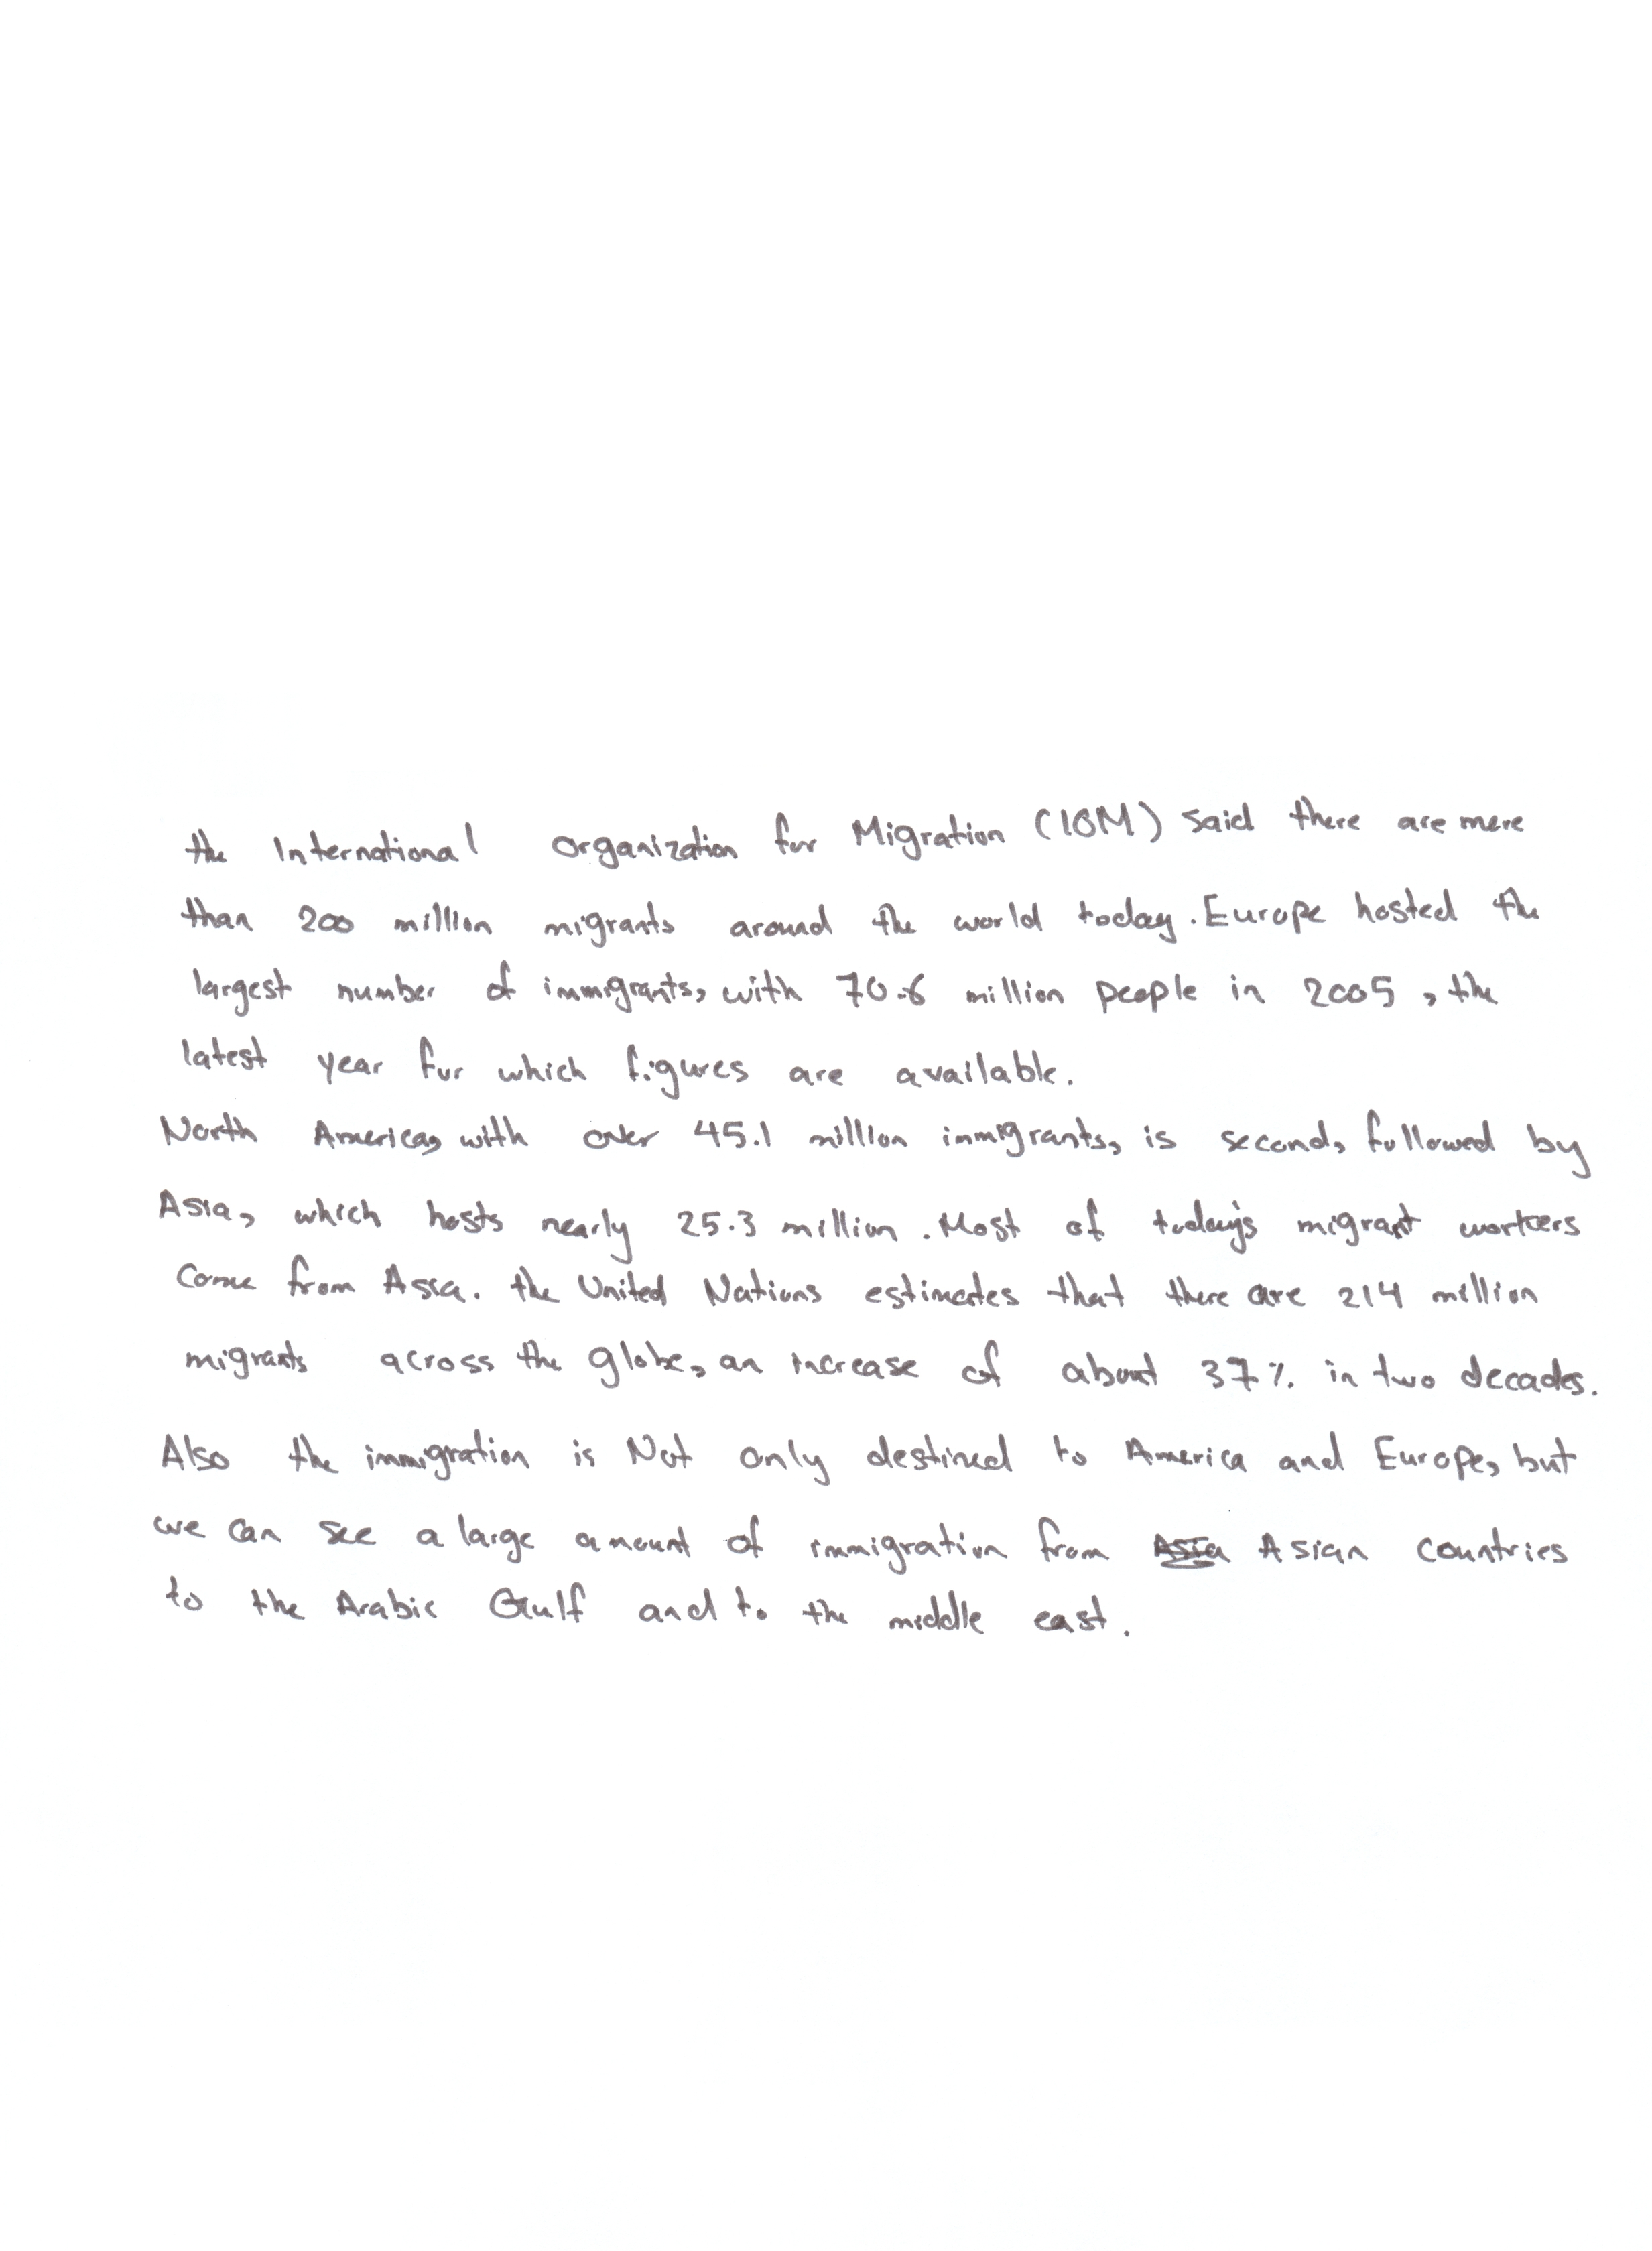 the International Organization for Migration (IOM) said there are more
than 200 million migrants around the world today. Europe hosted the
largest number of immigrants, with 70.6 million people in 2005, the
latest year for which figures are available.
North America, with over 45.1 million immigrants, is second, followed by
Asia, which hosts nearly 25.3 million. Most of today's migrant workers
come from Asia. the United Nations estimates that there are 214 million
migrants across the globe, an increase of about 37% in two decades.
Also the immigration is Not only destined to America and Europe, but
we can see a large amount of immigration from Asia Asian countries
to the Arabic Gulf and to the middle east.